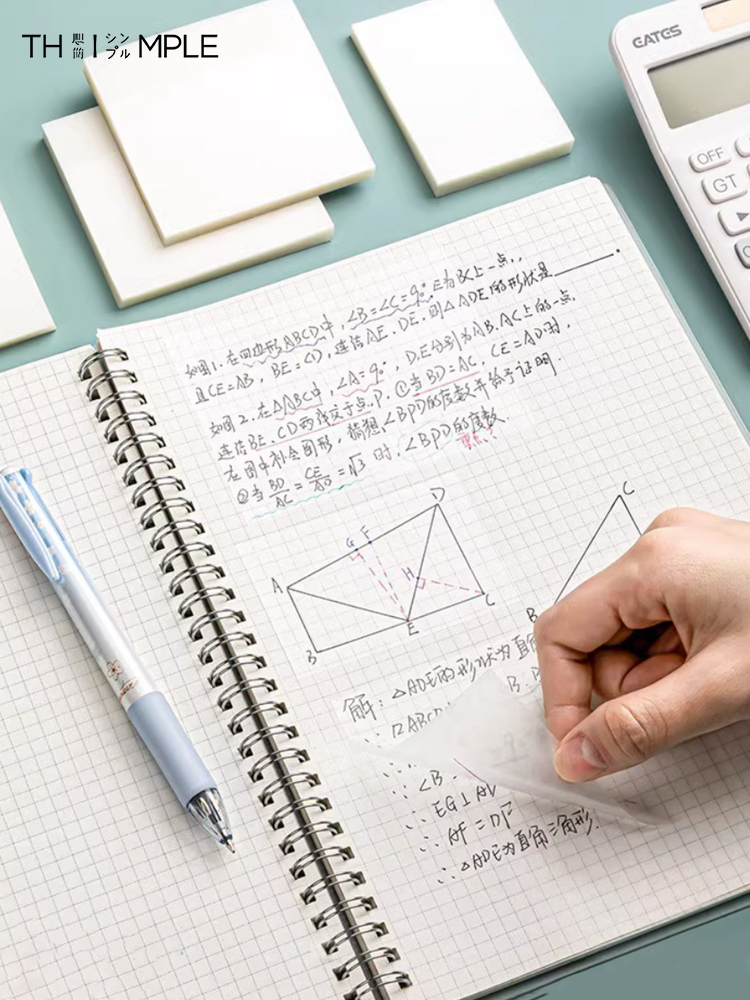 TH思简I シンプル MPLE
EATES
OFF
GT
如图1.在四边形ABCD中,∠B=∠C=90°,E为BC上一点,
且CE=AB,BE=CD,连结AE、DE,则△ADE的形状是
如图2.在△ABC中,∠A=90°,D.E分别为AB.AC上的一点.
连结BE.CD两线交于点P.①当BD=AC,CE=AD时,
在图中补全图形,猜想∠BPD的度数并给予证明.
②当BD/AC=CE/AD=√3时,∠BPD的度数.
重点?
D
G F
A
H
C
E
B
C
B
解:△ADE的形状为直角
∵ABCD
∠B
∴EG⊥AD
∴AF=DF
∴△ADE为直角三角形.